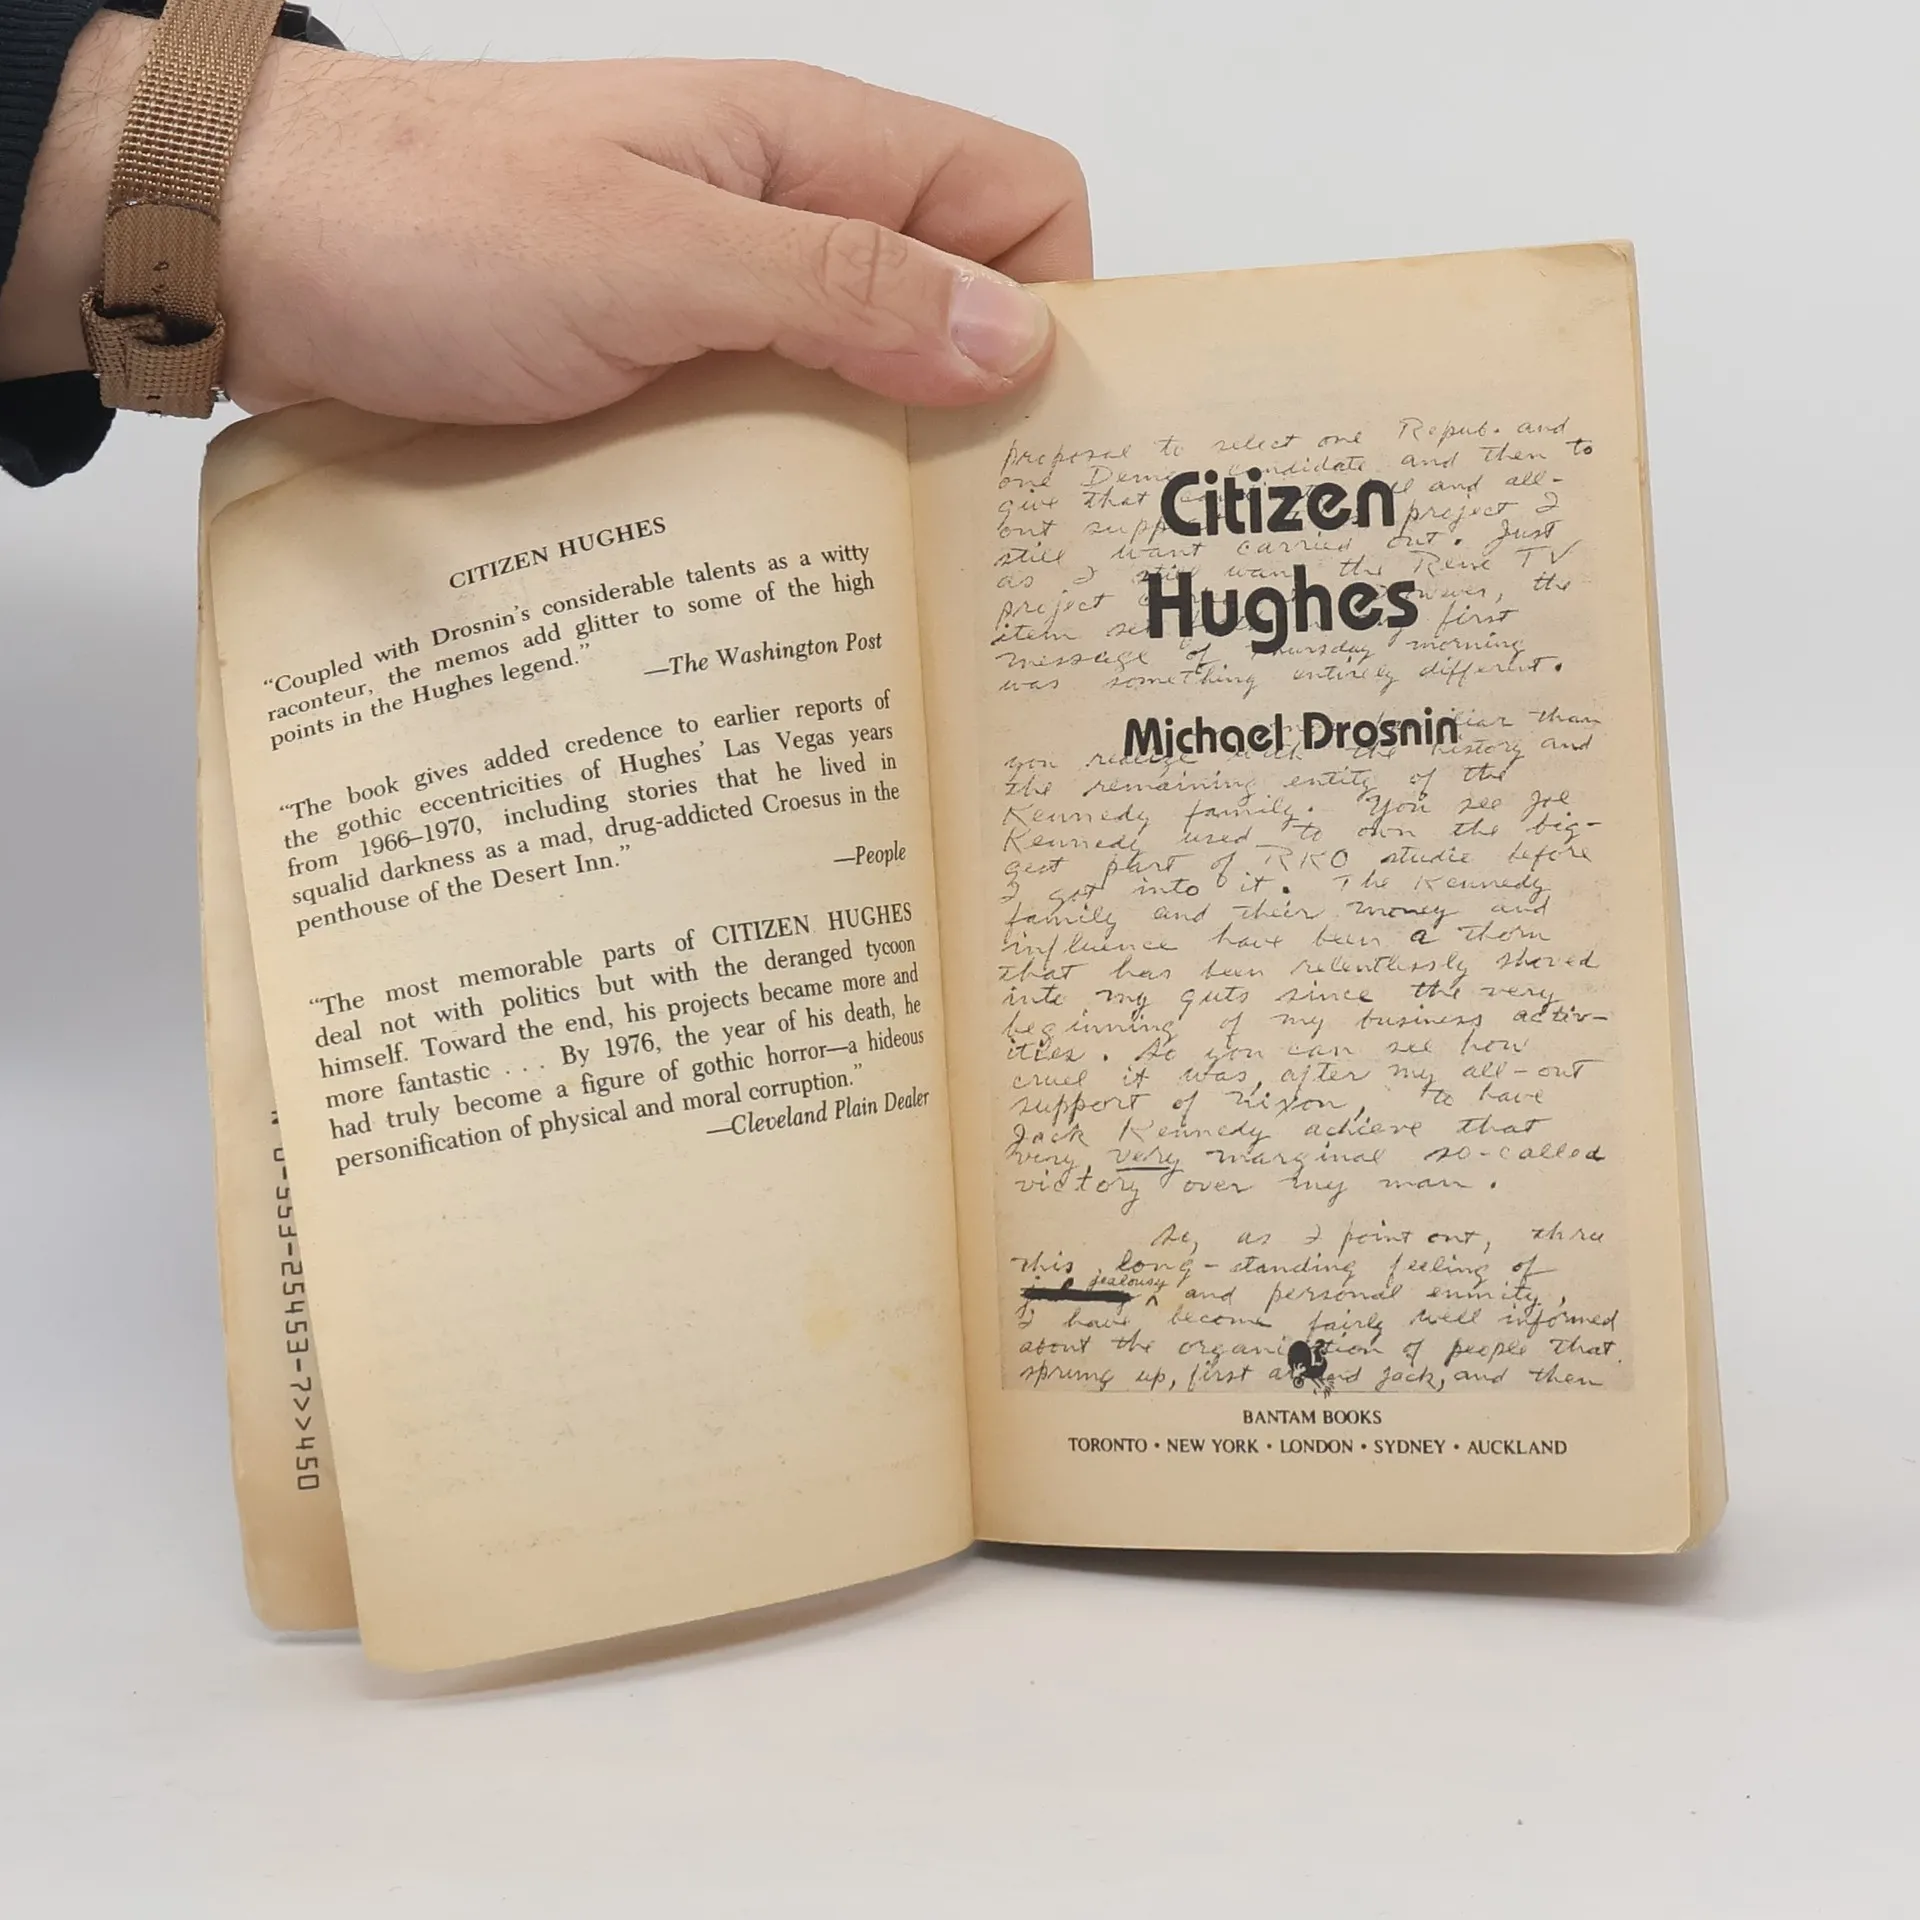 CITIZEN HUGHES
“Coupled with Drosnin’s considerable talents as a witty
raconteur, the memos add glitter to some of the high
points in the Hughes legend.”
—The Washington Post
“The book gives added credence to earlier reports of
the gothic eccentricities of Hughes’ Las Vegas years
from 1966–1970, including stories that he lived in
squalid darkness as a mad, drug-addicted Croesus in the
penthouse of the Desert Inn.”
—People
“The most memorable parts of CITIZEN HUGHES
deal not with politics but with the deranged tycoon
himself. Toward the end, his projects became more and
more fantastic . . . By 1976, the year of his death, he
had truly become a figure of gothic horror—a hideous
personification of physical and moral corruption.”
—Cleveland Plain Dealer
proposal to select one Repub. and
one candidate and then to
give that and all-
out project I
still want carried out. Just
as I still want the TV
project the
item first
message of Thursday morning
was something entirely different.
Citizen
Hughes
Michael Drosnin
than
you the history and
the remaining entity of the
Kennedy family. You see Joe
Kennedy used to own the big-
gest part of RKO studio before
I got into it. The Kennedy
family and their money and
influence have been a thorn
that has been relentlessly shoved
into my guts since the very
beginning of my business activ-
ities. So you can see how
cruel it was, after my all-out
support of Nixon, to have
Jack Kennedy achieve that
very, very marginal so-called
victory over my man.
So, as I point out, thru
this long-standing feeling of
jealousy and personal enmity,
I have become fairly well informed
about the organization of people that
sprung up, first around Jack, and then
BANTAM BOOKS
TORONTO • NEW YORK • LONDON • SYDNEY • AUCKLAND